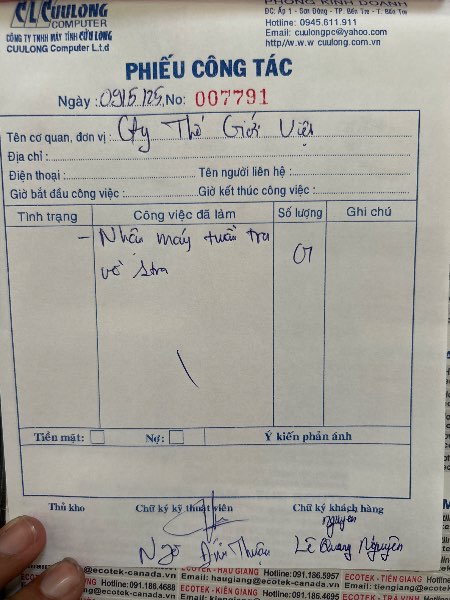 CL CUULONG
COMPUTER
CÔNG TY TNHH MÁY TÍNH CỬU LONG
CUULONG Computer L.t.d
PHÒNG KINH DOANH
ĐC: Ấp 1 - Sơn Đông - TP. Bến Tre - T. Bến Tre
Hotline: 0945.611.911
Email: cuulongpc@yahoo.com
http//w.w.w cuulong.com.vn
PHIẾU CÔNG TÁC
Ngày : 09/5/25 No: 007791
Tên cơ quan, đơn vị : Cty Thế Giới Việt
Địa chỉ :
Điện thoại : Tên người liên hệ :
Giờ bắt đầu công việc : Giờ kết thúc công việc :
Tình trạng Công việc đã làm Số lượng Ghi chú
- Nhận máy tuần tra 01
về sửa
Tiền mặt: Nợ: Ý kiến phản ánh
Thủ kho Chữ ký kỹ thuật viên Chữ ký khách hàng
nguyen
Ngô Đình Thuận Lê Quang Nguyên
@ecotek-canada.vn Email: haugiang@ecotek-canada.vn
Hotline:091.186.5957 ECOTEK - TIỀN GIANG Hotline
Email: tiengiang@ecotek
091.186.4688 ECOTEK - KIÊN GIANG Hotline:091.186.4695 ECOTEK - TRÀ VINH
@ecotek-canada.vn